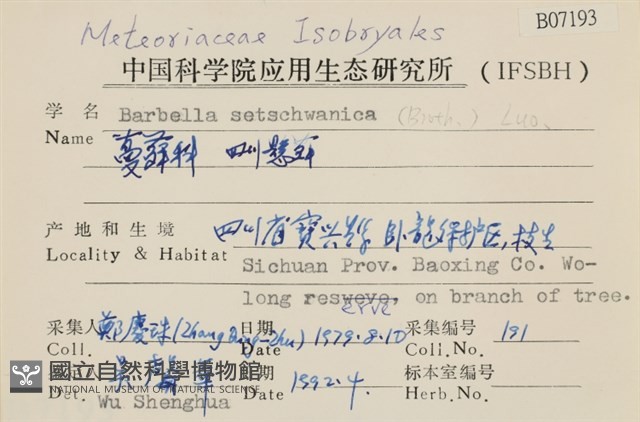 B07193
Meteoriaceae Isobryales
中国科学院应用生态研究所 (IFSBH)
学名 Barbella setschwanica (Broth.) Luo.
Name 蔓藓科 四川悬藓
产地和生境 四川省寶兴县 卧龍保护区,枝生
Locality & Habitat Sichuan Prov. Baoxing Co. Wo-
long resweve, on branch of tree.
erve
采集人 鄭慶珠(Zhang Qing-Zhu) 日期 1979.8.10 采集编号 191
Coll. Date Coll.No.
國立自然科學博物館
NATIONAL MUSEUM OF NATURAL SCIENCE
定人 日期 1992.4. 标本室编号
Det. Wu Shenghua Date Herb.No.